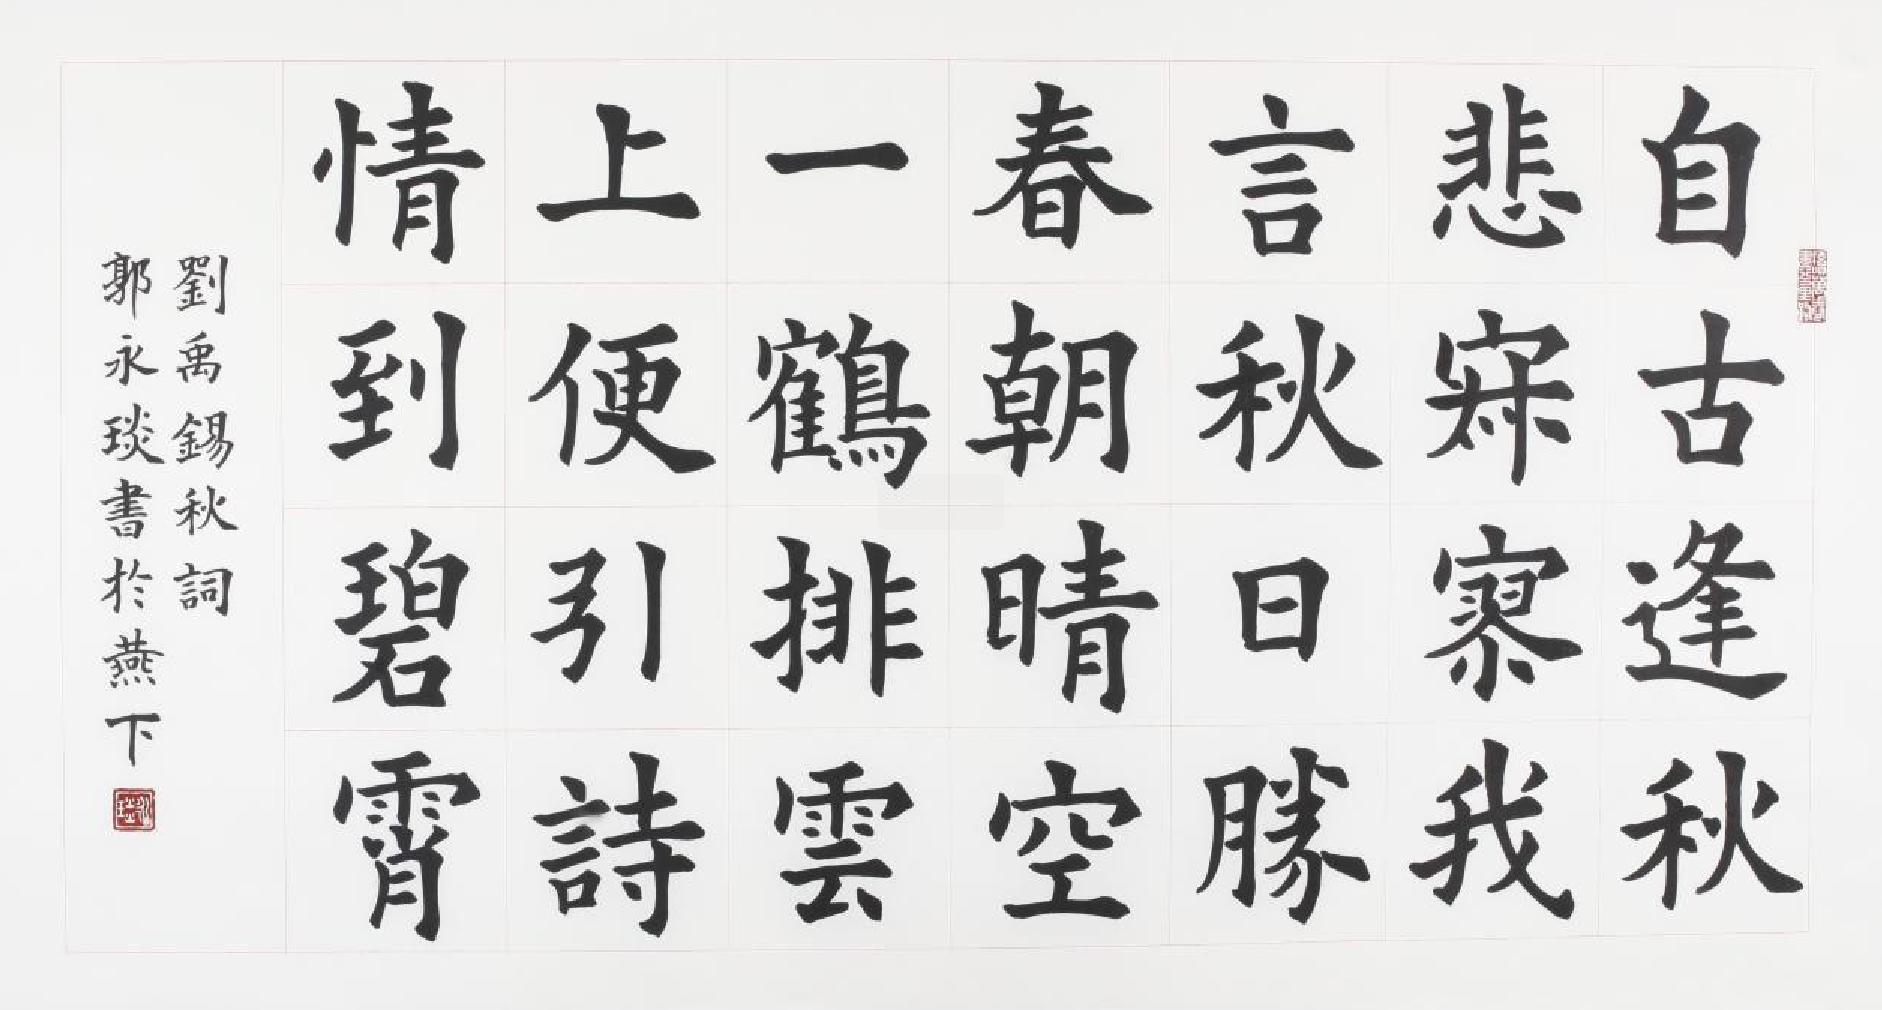 自古逢秋
悲寂寥我
言秋日勝
春朝晴空
一鶴排雲
上便引詩
情到碧霄
劉禹錫秋詞
郭永琰書於燕下